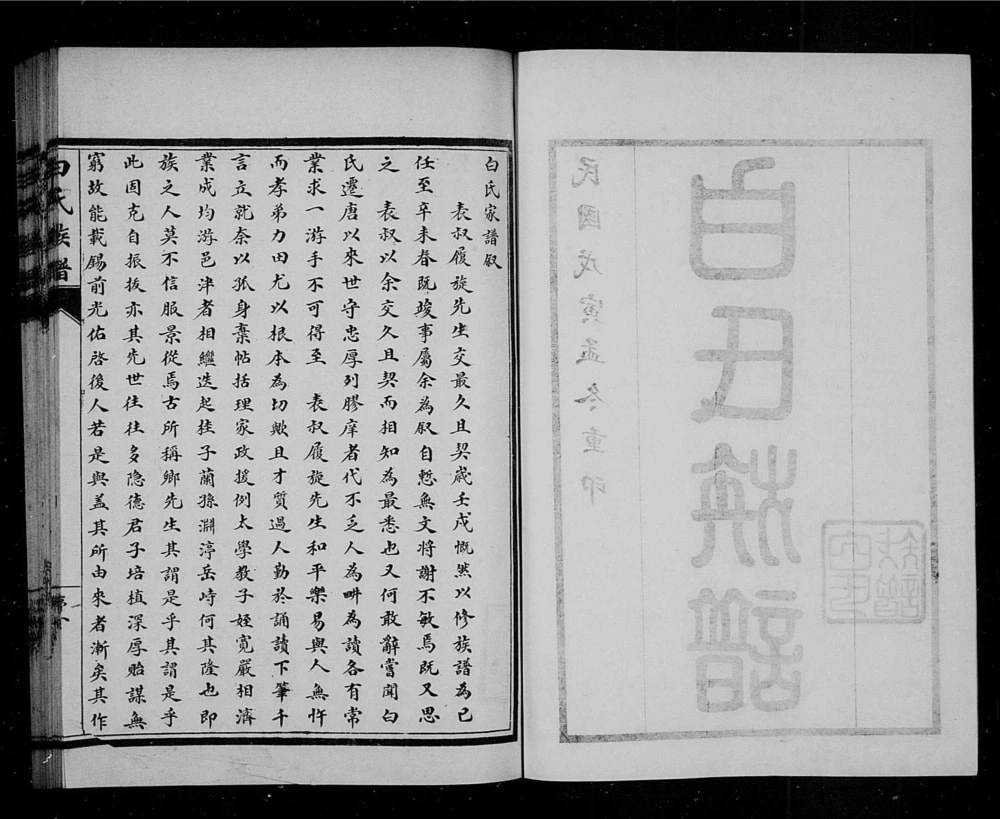 白氏族譜
民國戊寅孟冬重印
白氏家譜叙
表叔履旋先生交最久且契歲壬戌慨然以修族譜為已
任至辛未春既竣事屬余為叙自慙無文將謝不敏焉既又思
之　表叔以余交久且契而相知為最悉也又何敢辭嘗聞白
氏遷唐以來世守忠厚列膠庠者代不乏人為畊為讀各有常
業求一游手不可得至　表叔履旋先生和平樂易與人無忤
而孝弟力田尤以根本為切歟且才質過人勤於誦讀下筆千
言立就奈以孤身棄帖括理家政援例太學教子姪寬嚴相濟
業成均游邑津者相繼迭起桂子蘭孫淵渟岳峙何其隆也即
族之人莫不信服景從焉古所稱鄉先生其謂是乎其謂是乎
此固克自振拔亦其先世往往多隐德君子培植深厚貽謀無
窮故能載錫前光佑啓後人若是與蓋其所由來者漸矣其作
白氏族譜
序